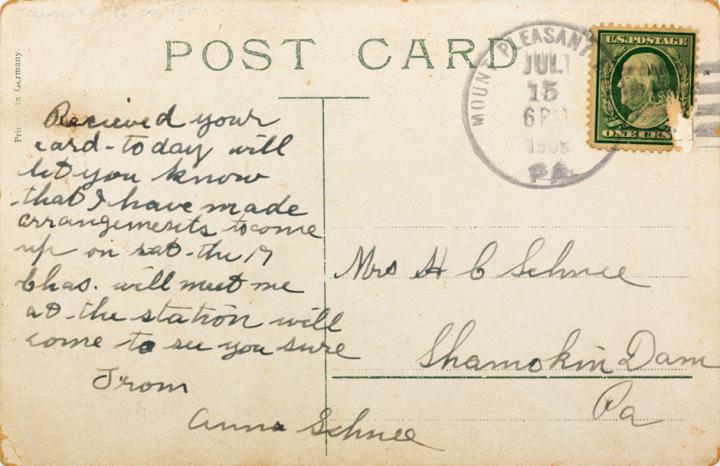 POST CARD
Printed in Germany.
MOUNT PLEASANT
JUL
15
6 PM
1909
PA.
U.S. POSTAGE
ONE CENT
Recieved your
card - today will
let you know
that I have made
arrangements to come
up on sat - the 19
Chas. will meet me
at the station will
come to see you sure
From
Anna Schnee
Mrs H C Schnee
Shamokin Dam
Pa